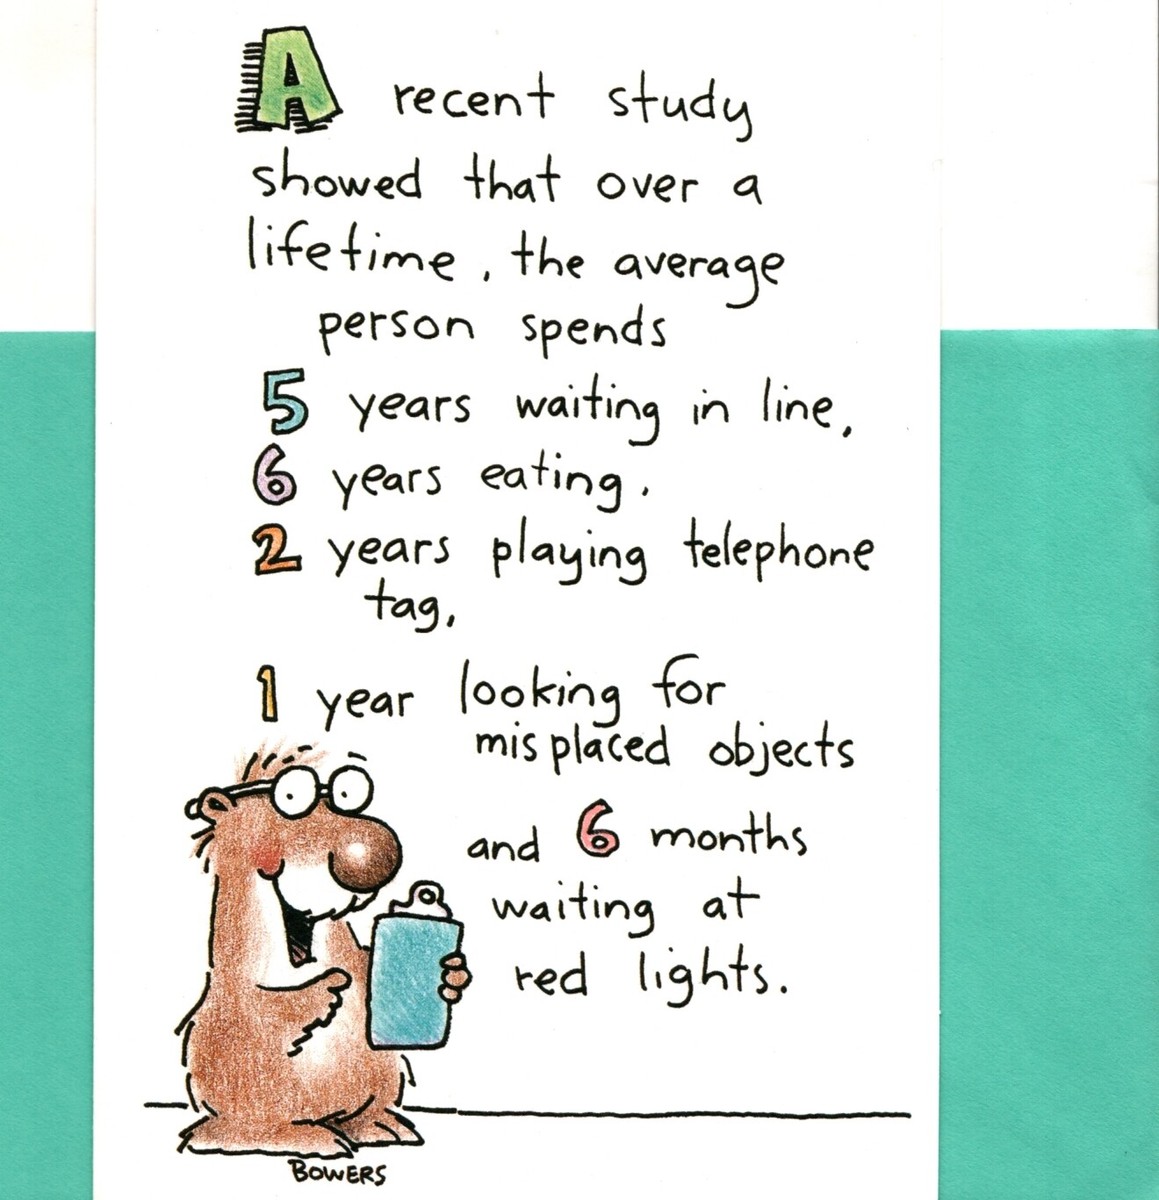 A recent study
showed that over a
lifetime, the average
person spends
5 years waiting in line,
6 years eating,
2 years playing telephone
tag,
1 year looking for
misplaced objects
and 6 months
waiting at
red lights.
BOWERS